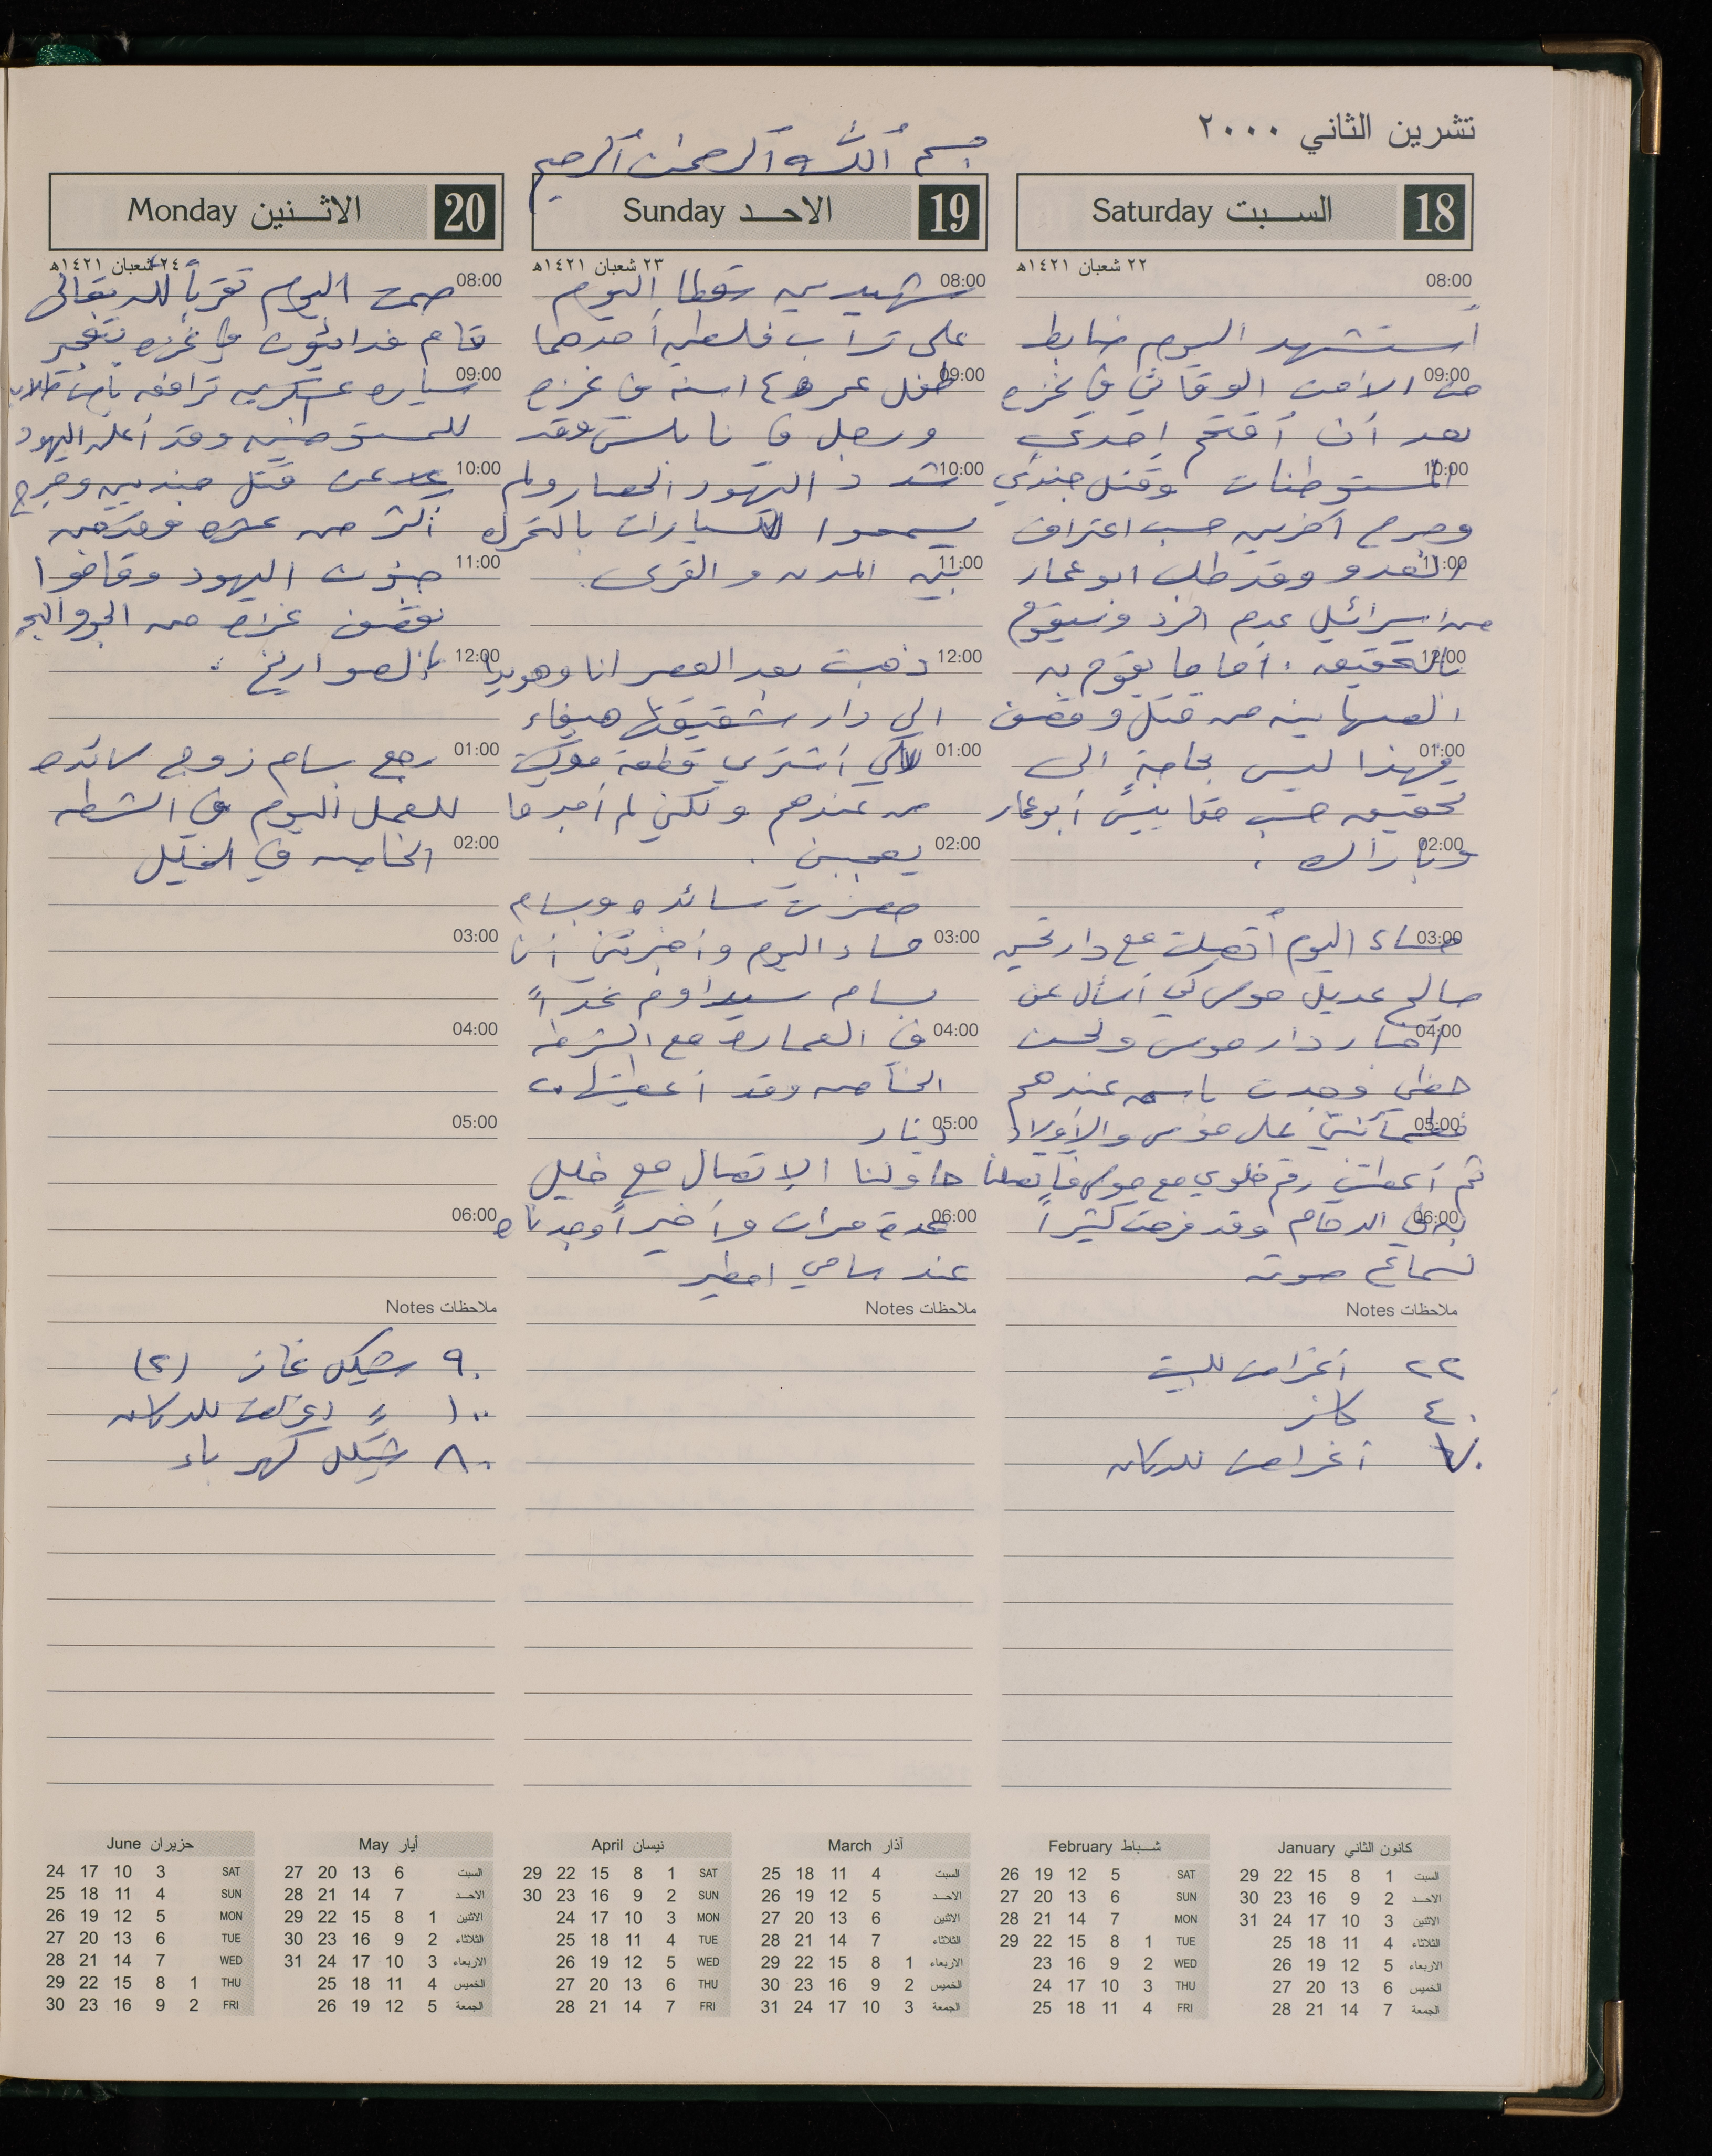 تشرين الثاني ٢٠٠٠
بسم الله الرحمن الرحيم
18 السبت Saturday
٢٢ شعبان ١٤٢١هـ
08:00
أستشهد اليوم ضابط
09:00
من الأمن الوقائي في غزه
بعد أن أقتحم إحدى
10:00
المستوطنات وقتل جندي
وجرح آخرين حسب اعتراف
11:00
العدو وقد طلب ابو عمار
من اسرائيل عدم الرد وسيقوم
12:00
بالتحقيق. أما ما يقوم به
الصهاينه من قتل وقصف
01:00
فهذا ليس بحاجةٍ الى
تحقيق حسب مقاييس أبو عمار
02:00
وباراك.
03:00
مساء اليوم أتصلت مع دار
صالح عديل موسى كي أسأل عن
04:00
أخبار دار موسى ولحسن
حظي وجدت باسم عندهم
05:00
فطمأنني على موسى والأولاد
ثم أعطاني رقم خلوي مع موسى فاتصلنا
06:00
به في الدمام وقد فرحت كثيراً
لسماع صوته
ملاحظات Notes
٢٢ أغراض للبيت
٤٠ كاز
٧٠ أغراض للدكان
19 الاحد Sunday
٢٣ شعبان ١٤٢١هـ
08:00
شهيدين سقطا اليوم
على تراب فلسطين أحدهما
09:00
طفل عمره ١٤ سنه في غزه
ورجل في نابلس وقد
10:00
شدد اليهود الحصار ولم
يسمحوا للسيارات بالتحرك
11:00
بين المدن والقرى.
12:00
ذهبت بعد العصر انا وهويدا
الى دار شقيقتها هيفاء
01:00
لكي أشتري قطعة موكيت
من عندهم ولكني لم أجد ما
02:00
يعجبني.
حضرت سائده وبسام
03:00
مساء اليوم وأخبرتني أن
بسام سيداوم غداً
04:00
في العمارة مع الشرطه
الخاصه وقد أعطيتها ٢٠
05:00
دينار
حاولنا الاتصال مع خليل
06:00
عدة مرات وأخيراً وجدناه
عند سامي امطير
ملاحظات Notes
20 الاثنين Monday
٢٤ شعبان ١٤٢١هـ
08:00
صمت اليوم تقرباً لله تعالى
قام فدائيون في غزه بتفجير
09:00
سياره عسكريه ترافق باص طلاب
للمستوطنين وقد أعلن اليهود
10:00
عن قتل جنديين وجرح
أكثر من عشره وقد جن
11:00
جنون اليهود وقاموا
بقصف غزه من الجو والبحر
12:00
بالصواريخ.
01:00
رجع بسام زوج سائده
للعمل اليوم في الشرطه
02:00
الخاصه في الخليل
03:00
04:00
05:00
06:00
ملاحظات Notes
٩٠ شيكل غاز (٢)
١٠٠ " أغراض للدكان
٨٠ شيكل كهرباء
كانون الثاني January
السبت 1 8 15 22 29
الاحد 2 9 16 23 30
الاثنين 3 10 17 24 31
الثلاثاء 4 11 18 25
الاربعاء 5 12 19 26
الخميس 6 13 20 27
الجمعة 7 14 21 28
شباط February
SAT 5 12 19 26
SUN 6 13 20 27
MON 7 14 21 28
TUE 1 8 15 22 29
WED 2 9 16 23
THU 3 10 17 24
FRI 4 11 18 25
آذار March
السبت 4 11 18 25
الاحد 5 12 19 26
الاثنين 6 13 20 27
الثلاثاء 7 14 21 28
الاربعاء 1 8 15 22 29
الخميس 2 9 16 23 30
الجمعة 3 10 17 24 31
نيسان April
SAT 1 8 15 22 29
SUN 2 9 16 23 30
MON 3 10 17 24
TUE 4 11 18 25
WED 5 12 19 26
THU 6 13 20 27
FRI 7 14 21 28
أيار May
السبت 6 13 20 27
الاحد 7 14 21 28
الاثنين 1 8 15 22 29
الثلاثاء 2 9 16 23 30
الاربعاء 3 10 17 24 31
الخميس 4 11 18 25
الجمعة 5 12 19 26
حزيران June
SAT 3 10 17 24
SUN 4 11 18 25
MON 5 12 19 26
TUE 6 13 20 27
WED 7 14 21 28
THU 1 8 15 22 29
FRI 2 9 16 23 30